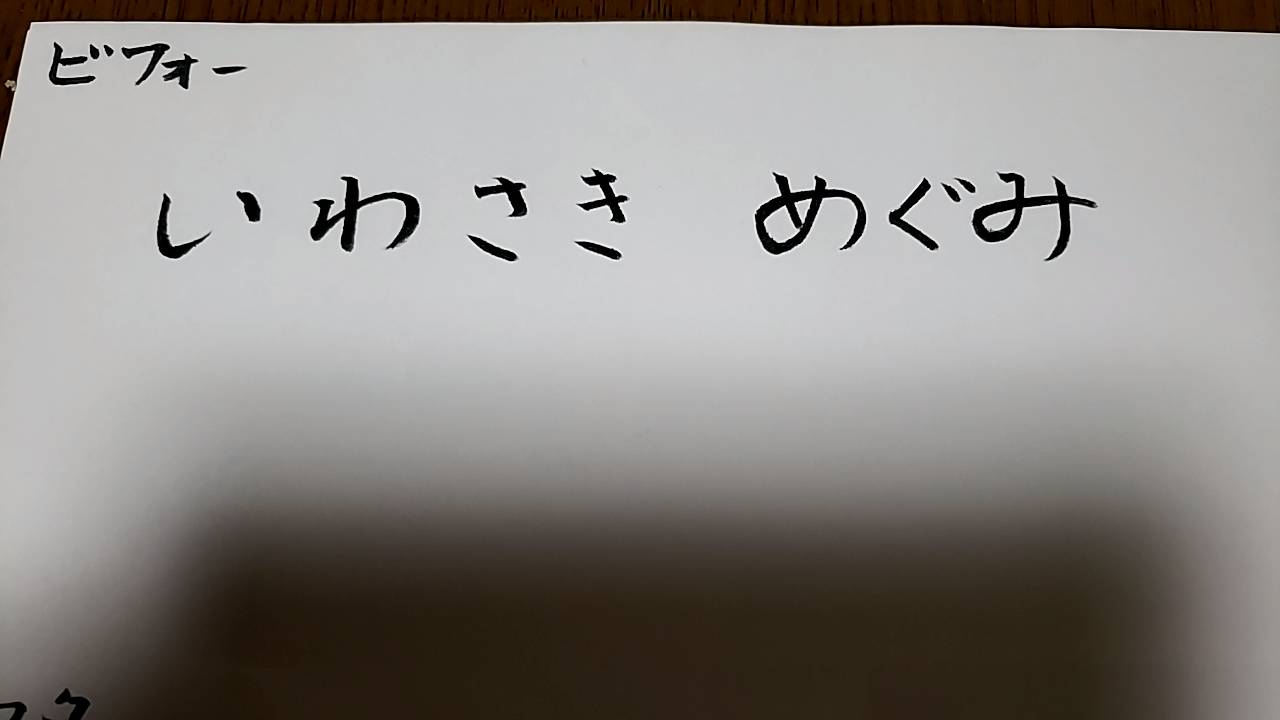 ビフォー
いわさき めぐみ